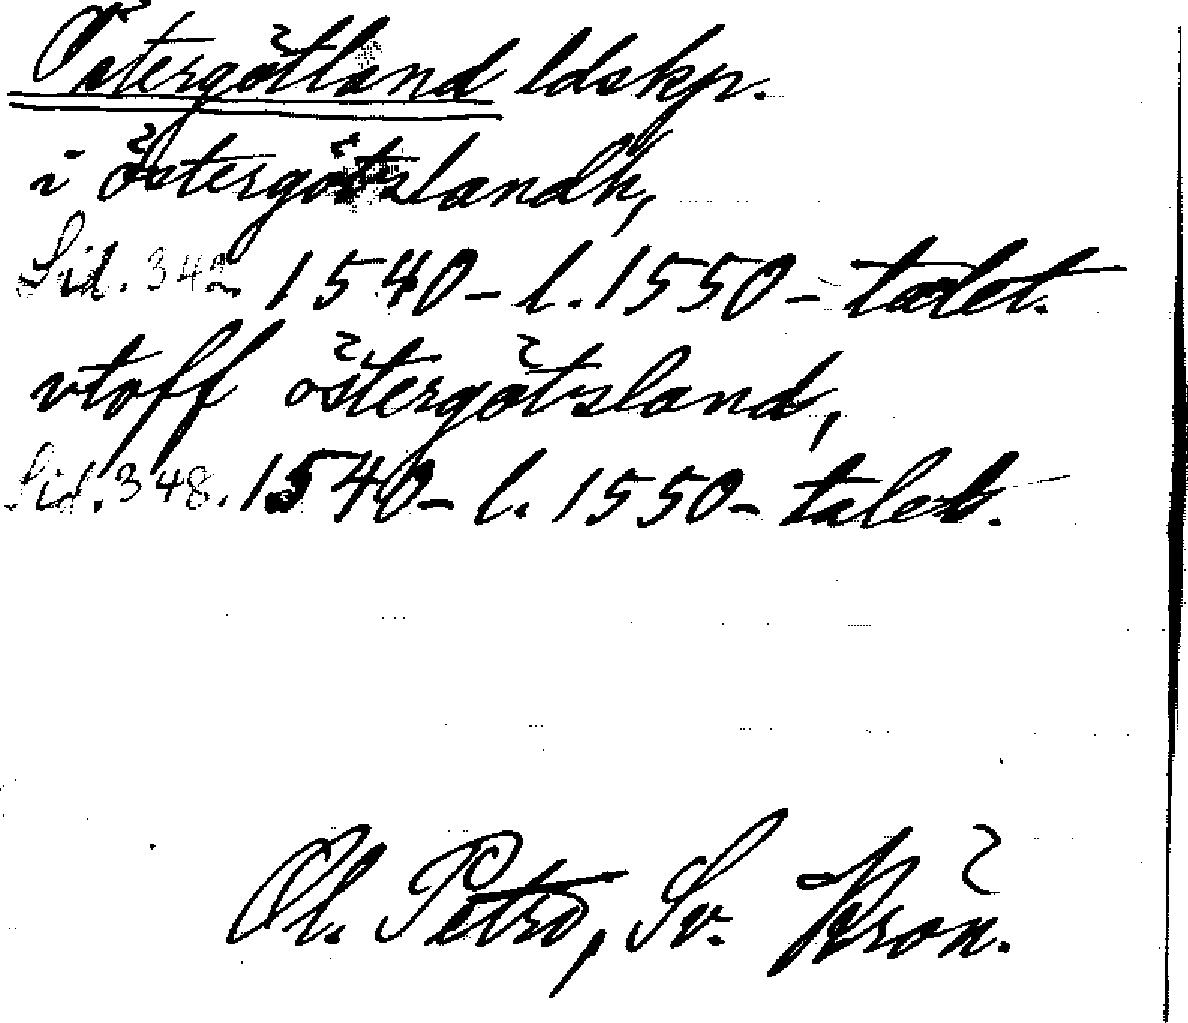 Östergötland ldskp.
i östergötslandh,
Sid. 342 1540- l. 1550-talet.
vtoff östergötsland,
Sid. 348. 1540- l. 1550-talet.
Ol. Petri, Sv. Krön.